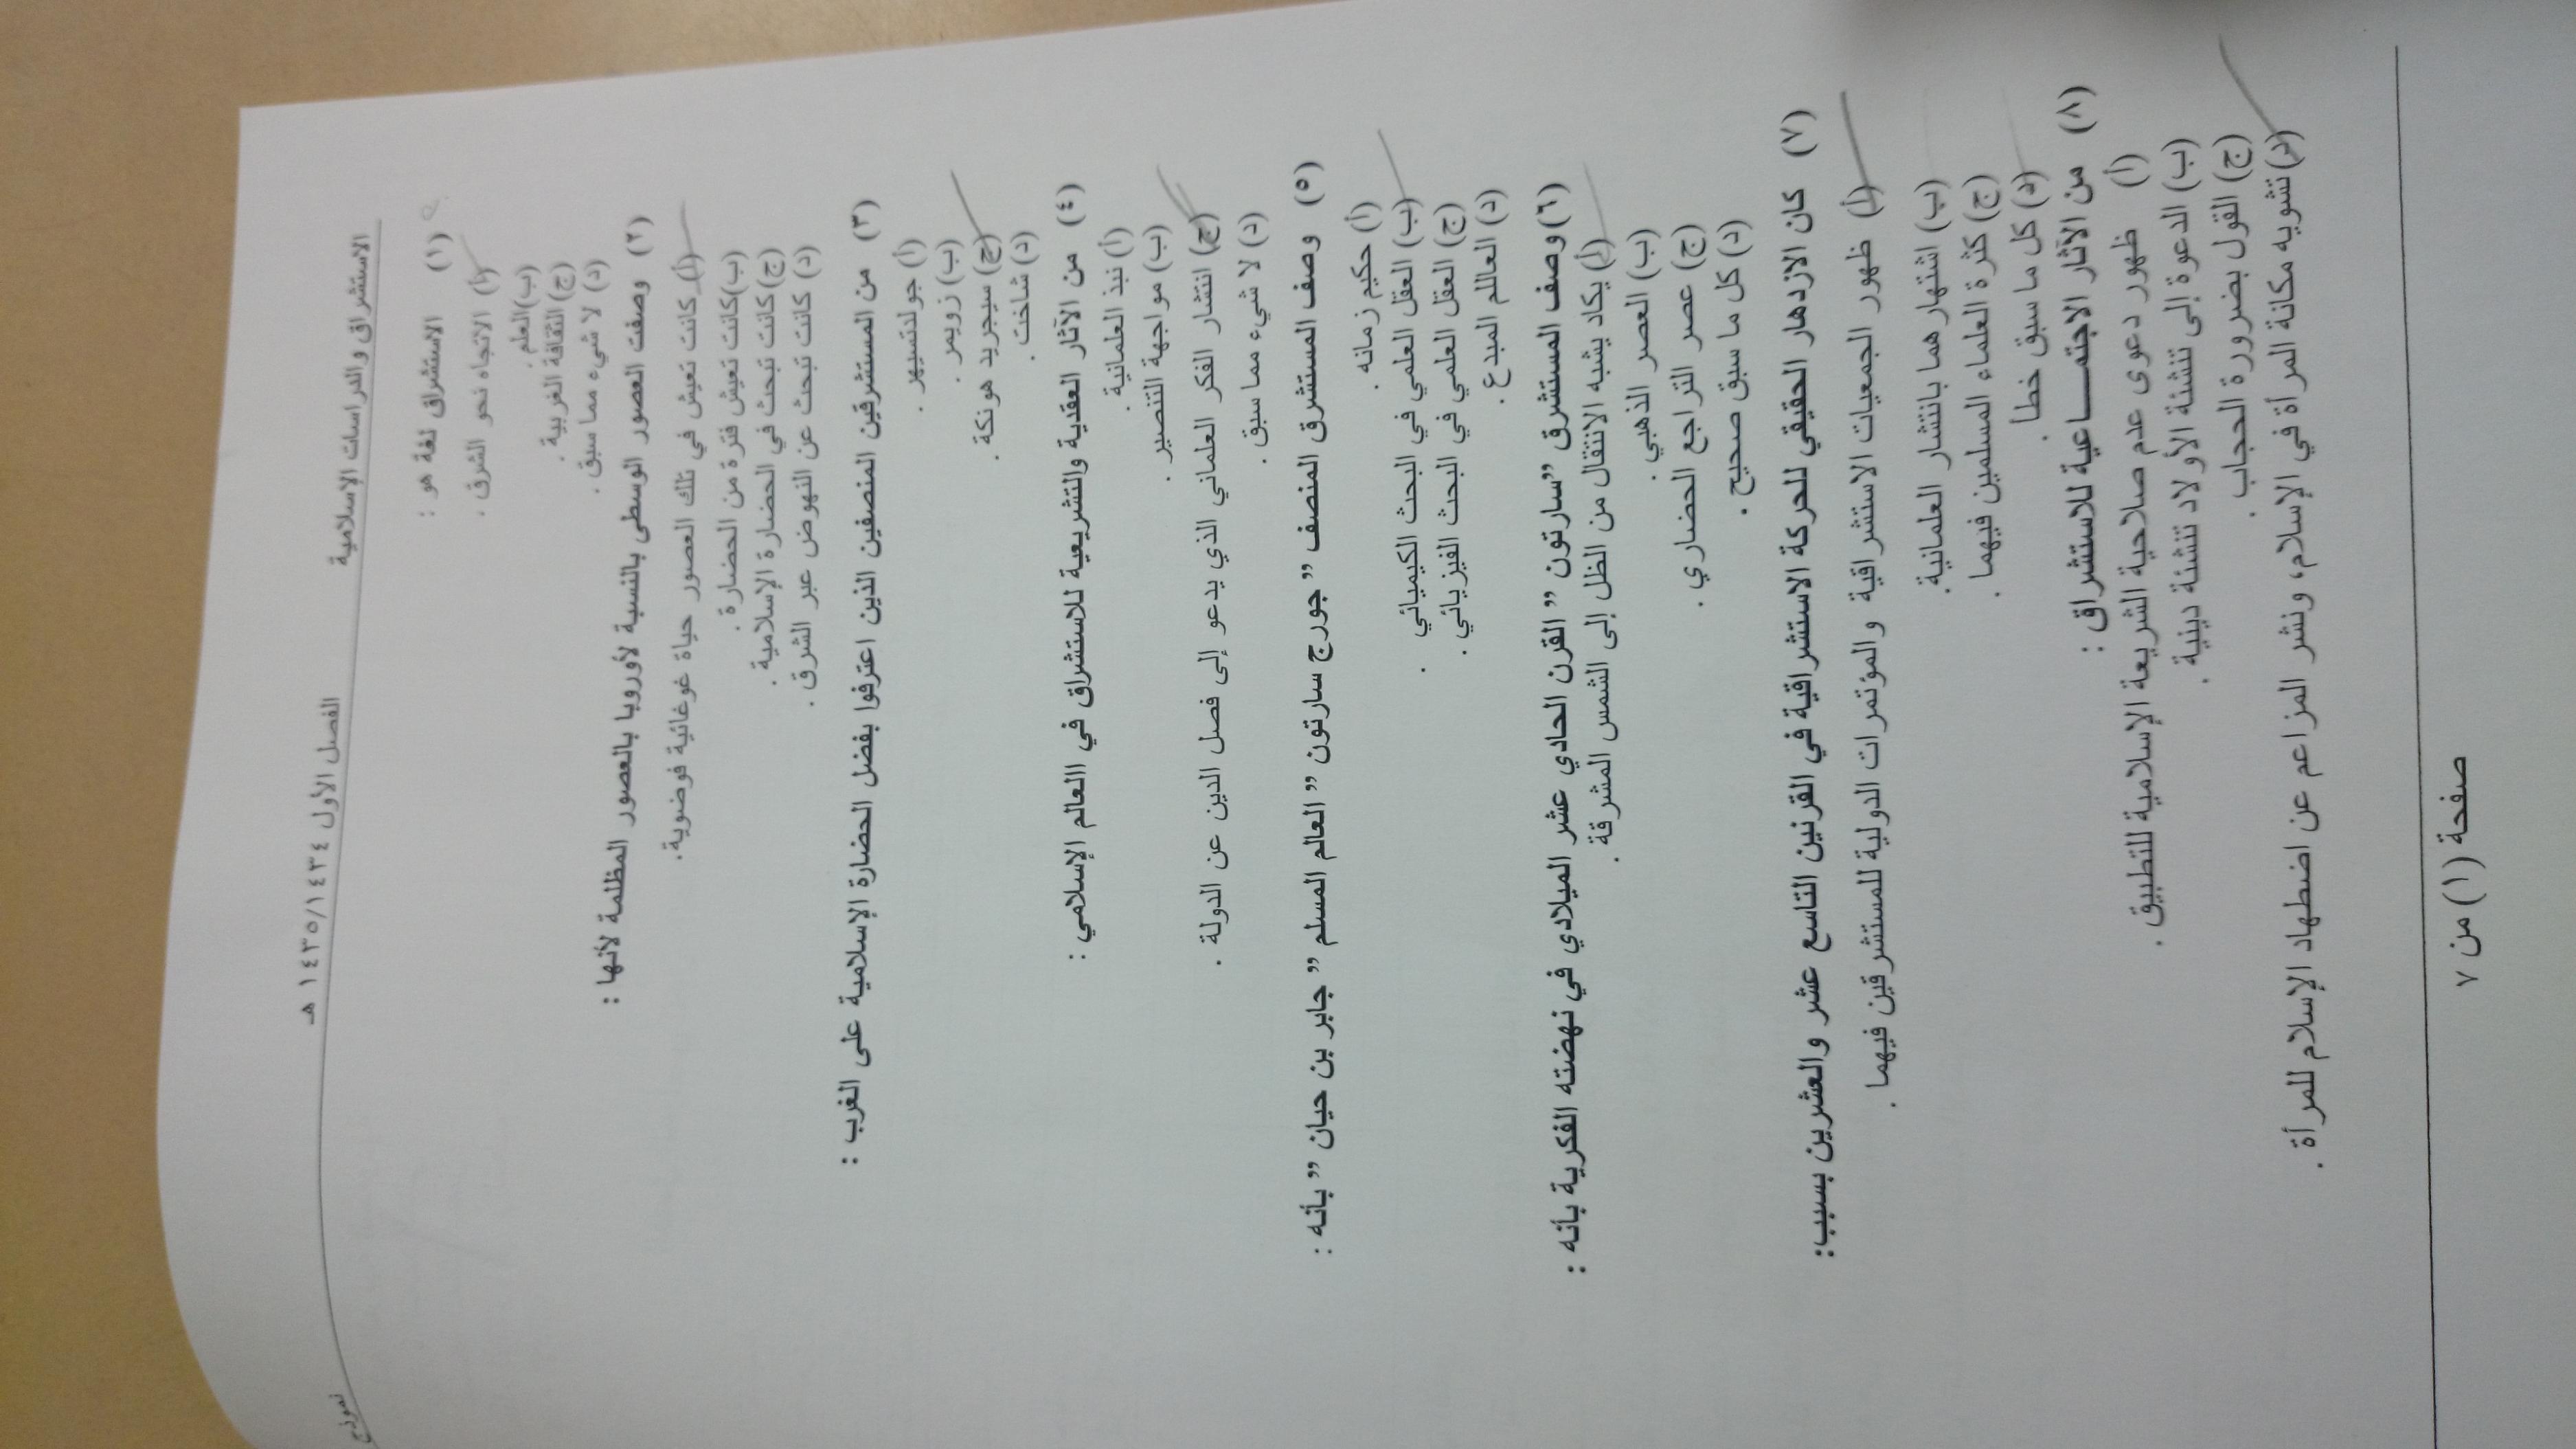 الاستشراق والدراسات الإسلامية الفصل الأول ١٤٣٥/١٤٣٤ هـ نموذج
(١) الاستشراق لغة هو :
(أ) الاتجاه نحو الشرق .
(ب) العلم .
(ج) الثقافة الغربية .
(د) لا شيء مما سبق .
(٢) وصفت العصور الوسطى بالنسبة لأوروبا بالعصور المظلمة لأنها :
(أ) كانت تعيش في تلك العصور حياة غوغائية فوضوية.
(ب) كانت تعيش فترة من الحضارة .
(ج) كانت تبحث في الحضارة الإسلامية .
(د) كانت تبحث عن النهوض عبر الشرق .
(٣) من المستشرقين المنصفين الذين اعترفوا بفضل الحضارة الإسلامية على الغرب :
(أ) جولدتسيهر .
(ب) زويمر .
(ج) سيجريد هونكة .
(د) شاخت .
(٤) من الآثار العقدية والتشريعية للاستشراق في االعالم الإسلامي :
(أ) نبذ العلمانية .
(ب) مواجهة التنصير .
(ج) انتشار الفكر العلماني الذي يدعو إلى فصل الدين عن الدولة .
(د) لا شيء مما سبق .
(٥) وصف المستشرق المنصف ” جورج سارتون ” العالم المسلم ” جابر بن حيان ” بأنه :
(أ) حكيم زمانه .
(ب) العقل العلمي في البحث الكيميائي .
(ج) العقل العلمي في البحث الفيزيائي .
(د) العاللم المبدع .
(٦) وصف المستشرق ”سارتون ” القرن الحادي عشر الميلادي في نهضته الفكرية بأنه :
(أ) يكاد يشبه الانتقال من الظل إلى الشمس المشرقة .
(ب) العصر الذهبي .
(ج) عصر التراجع الحضاري .
(د) كل ما سبق صحيح .
(٧) كان الازدهار الحقيقي للحركة الاستشراقية في القرنين التاسع عشر والعشرين بسبب:
(أ) ظهور الجمعيات الاستشراقية والمؤتمرات الدولية للمستشرقين فيهما .
(ب) اشتهارهما بانتشار العلمانية .
(ج) كثرة العلماء المسلمين فيهما .
(د) كل ما سبق خطا .
(٨) من الآثار الاجتمـــاعية للاستشراق :
(أ) ظهور دعوى عدم صلاحية الشريعة الإسلامية للتطبيق .
(ب) الدعوة إلى تنشئة الأولاد تنشئة دينية .
(ج) القول بضرورة الحجاب .
(د) تشويه مكانة المرأة في الإسلام، ونشر المزاعم عن اضطهاد الإسلام للمرأة .
صفحة (١) من ٧